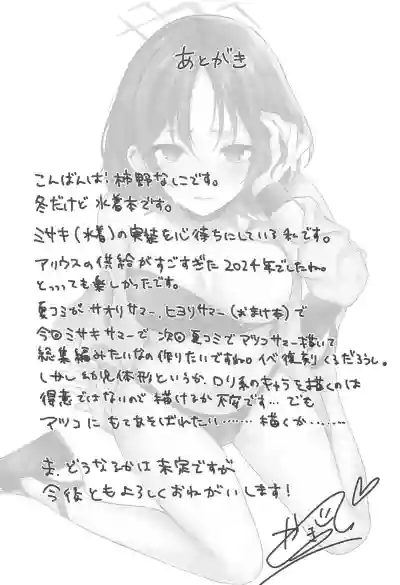 あとがき
こんばんは!柿野なしこです。
冬だけど水着本です。
ミサキ(水着)の実装を心待ちにしている私です。
アリウスの供給がすごすぎた2024年でしたね。
とっっても楽しかったです。
夏コミがサオリサマー、ヒヨリサマー(おまけ本)で
今回ミサキサマーで次回夏コミでアツコサマー描いて
総集編みたいなの作りたいですね。イベ復刻くるだろうし。
しかし幼児体形というか、ロリ系のキャラを描くのは
得意ではないので描けるか不安です…でも
アツコにもてあそばれたい……描くか……
ま、どうなるかは未定ですが
今後ともよろしくおねがいします!